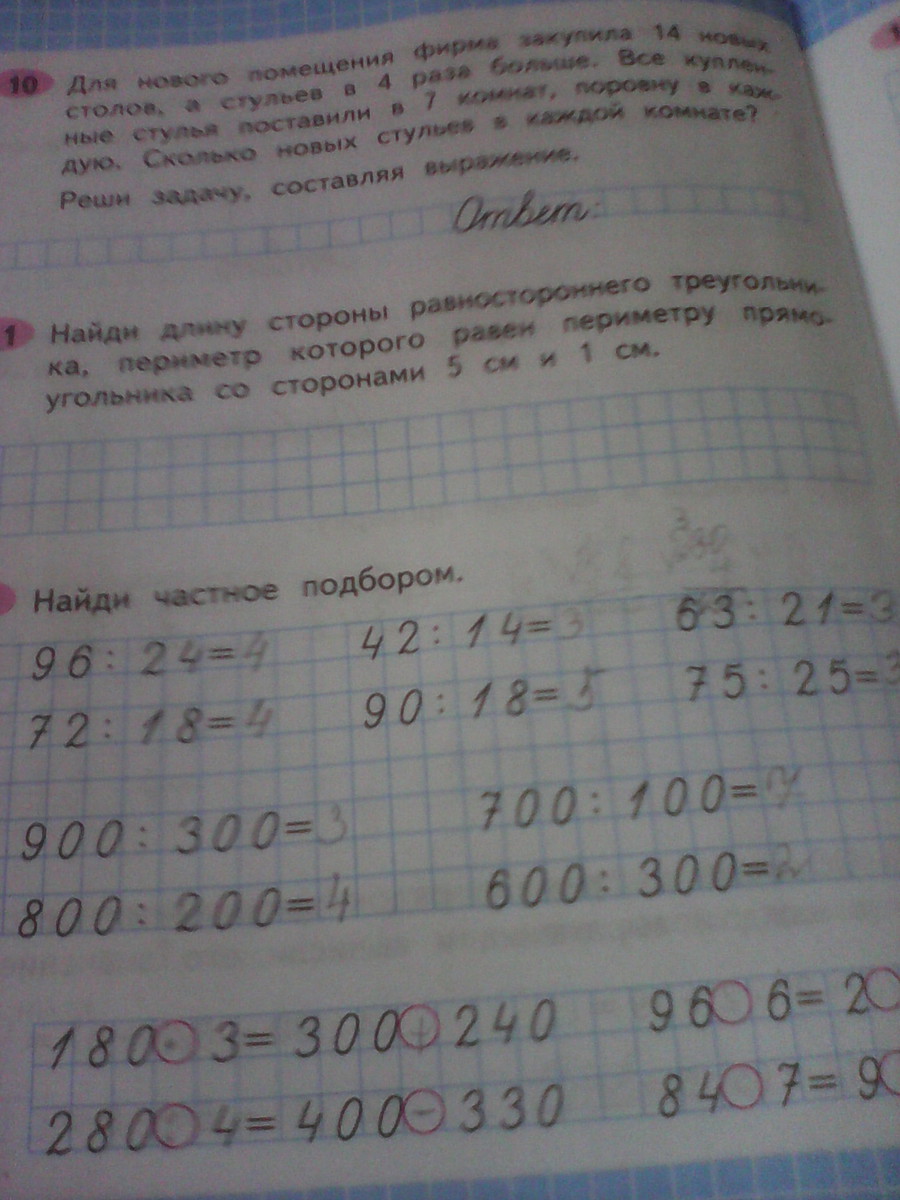 10 Для нового помещения фирма закупила 14 новых
столов, а стульев в 4 раза больше. Все куплен-
ные стулья поставили в 7 комнат, поровну в каж-
дую. Сколько новых стульев в каждой комнате?
Реши задачу, составляя выражение.
Ответ:
1 Найди длину стороны равностороннего треугольни-
ка, периметр которого равен периметру прямо-
угольника со сторонами 5 см и 1 см.
Найди частное подбором.
96 : 24 = 4 42 : 14 = 3 63 : 21 = 3
72 : 18 = 4 90 : 18 = 5 75 : 25 = 3
900 : 300 = 3 700 : 100 = 7
800 : 200 = 4 600 : 300 = 2
180 · 3 = 300 + 240 96 6 = 2
280 : 4 = 400 − 330 84 7 = 9